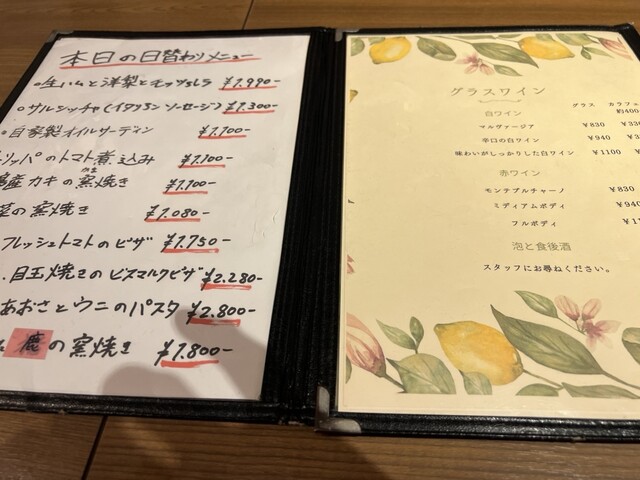 本日の日替わりメニュー
○生ハムと洋梨とモッツァレラ ¥1.990-
○サルシッチャ(イタリアンソーセージ) ¥1.300-
○自家製オイルサーディン ¥1.100-
リッパのトマト煮込み ¥1.100-
産カキの窯焼き ¥1.100-
かま
菜の窯焼き ¥1.080-
フレッシュトマトのピザ ¥1.750-
目玉焼きのビスマルクピザ ¥2.280-
あおさとウニのパスタ ¥2.800-
鹿の窯焼き ¥1.800-
グラスワイン
グラス カラフェ
約400
白ワイン
マルヴァージア ¥830
辛口の白ワイン ¥940
味わいがしっかりした白ワイン ¥1100
赤ワイン
モンテプルチャーノ ¥830
ミディアムボディ ¥940
フルボディ
泡と食後酒
スタッフにお尋ねください。